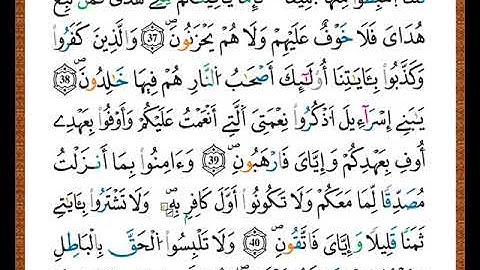 قُلْنَا ٱهْبِطُوا۟ مِنْهَا جَمِيعًا فَإِمَّا يَأْتِيَنَّكُم مِّنِّے هُدًى فَمَن تَبِعَ
هُدَاىَ فَلَا خَوْفٌ عَلَيْهِمْ وَلَا هُمْ يَحْزَنُونَ 37 وَالَّذِينَ كَفَرُوا۟
وَكَذَّبُوا۟ بِـَٔايَٰتِنَا أُو۟لَٰٓئِكَ أَصْحَٰبُ اُ۬لنَّارِ هُمْ فِيهَا خَٰلِدُونَ 38
يَٰبَنِے إِسْرَآءِيلَ اَ۟ذْكُرُوا۟ نِعْمَتِىَ اَ۬لَّتِے أَنْعَمْتُ عَلَيْكُمْ وَأَوْفُوا۟ بِعَهْدِے
أُوفِ بِعَهْدِكُمْ وَإِيَّٰىَ فَارْهَبُونِ 39 وَءَامِنُوا۟ بِمَا أَنزَلْتُ
مُصَدِّقًا لِّمَا مَعَكُمْ وَلَا تَكُونُوا۟ أَوَّلَ كَافِرِۭ بِهِۦ وَلَا تَشْتَرُوا۟ بِـَٔايَٰتِے
ثَمَنًا قَلِيلًا وَإِيَّٰىَ فَاتَّقُونِ 40 وَلَا تَلْبِسُوا۟ اُ۬لْحَقَّ بِالْبَٰطِلِ